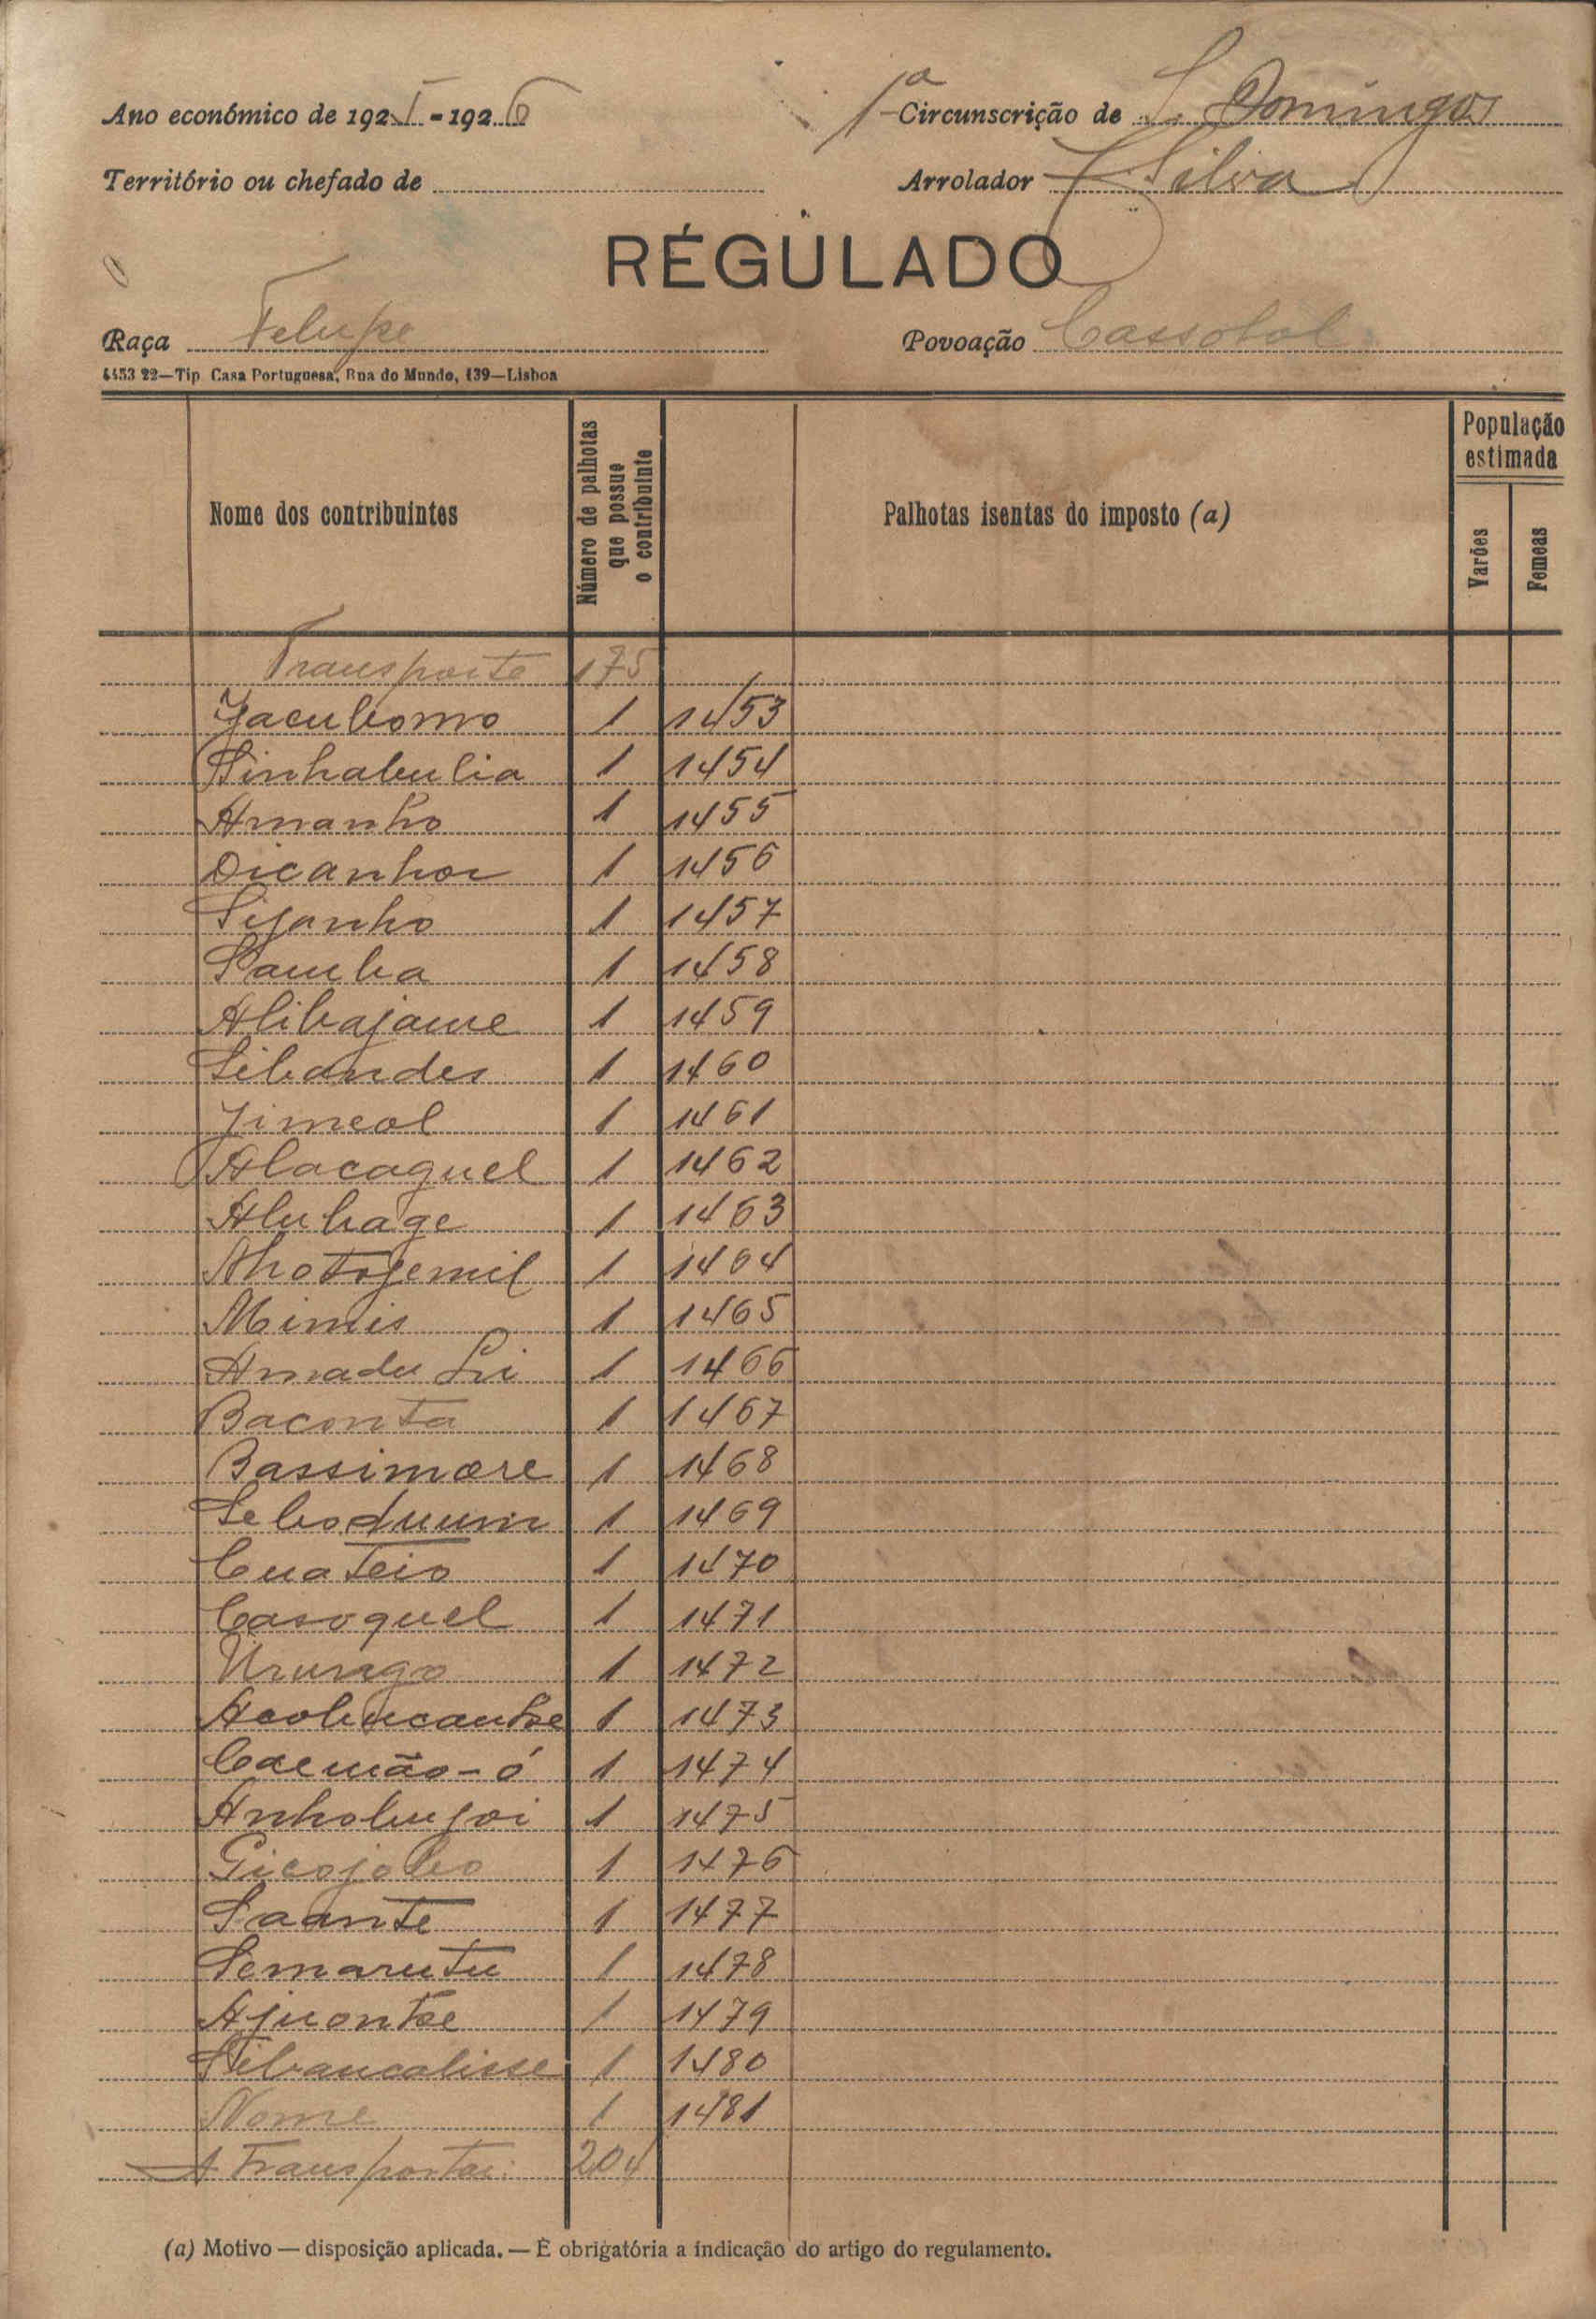 Ano económico de 1925-1926
1ª Circunscrição de S. Domingos
Território ou chefado de
Arrolador Silva
RÉGULADO
Raça Felupe
Povoação Cassolol
4453 22—Tip Casa Portuguesa, Rua do Mundo, 139—Lisboa
Nome dos contribuintes
Número de palhotas que possue o contribuinte
Palhotas isentas do imposto (a)
População estimada
Varões
Femeas
Transporte 175
Jacubomo 1 1453
Sinhabulia 1 1454
Amanho 1 1455
Dicanhor 1 1456
Sijanho 1 1457
Samba 1 1458
Alibajame 1 1459
Sibandes 1 1460
Jimeol 1 1461
Alacaguel 1 1462
Alubage 1 1463
Nhotogemil 1 1464
Mimis 1 1465
Amadu Li 1 1466
Baconta 1 1467
Bassimore 1 1468
Seboduum 1 1469
Cuateio 1 1470
Casoquel 1 1471
1 1472
1 1473
1 1474
1 1475
Gicojobo 1 1476
Saante 1 1477
Semarutu 1 1478
Ajuonte 1 1479
Sibancalisse 1 1480
Nome 1 1481
A Transportar: 204
(a) Motivo — disposição aplicada. — É obrigatória a indicação do artigo do regulamento.